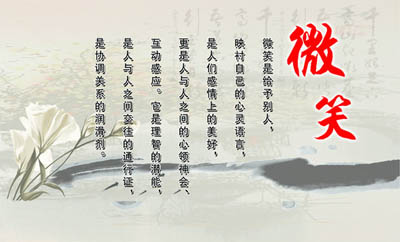 微笑
微笑是给予别人，
映衬自己的心灵语言，
是人们感情上的美好，
更是人与人之间的心领神会、
互动感应。它是理智的潜能，
是人与人之间交往的通行证，
是协调关系的润滑剂。